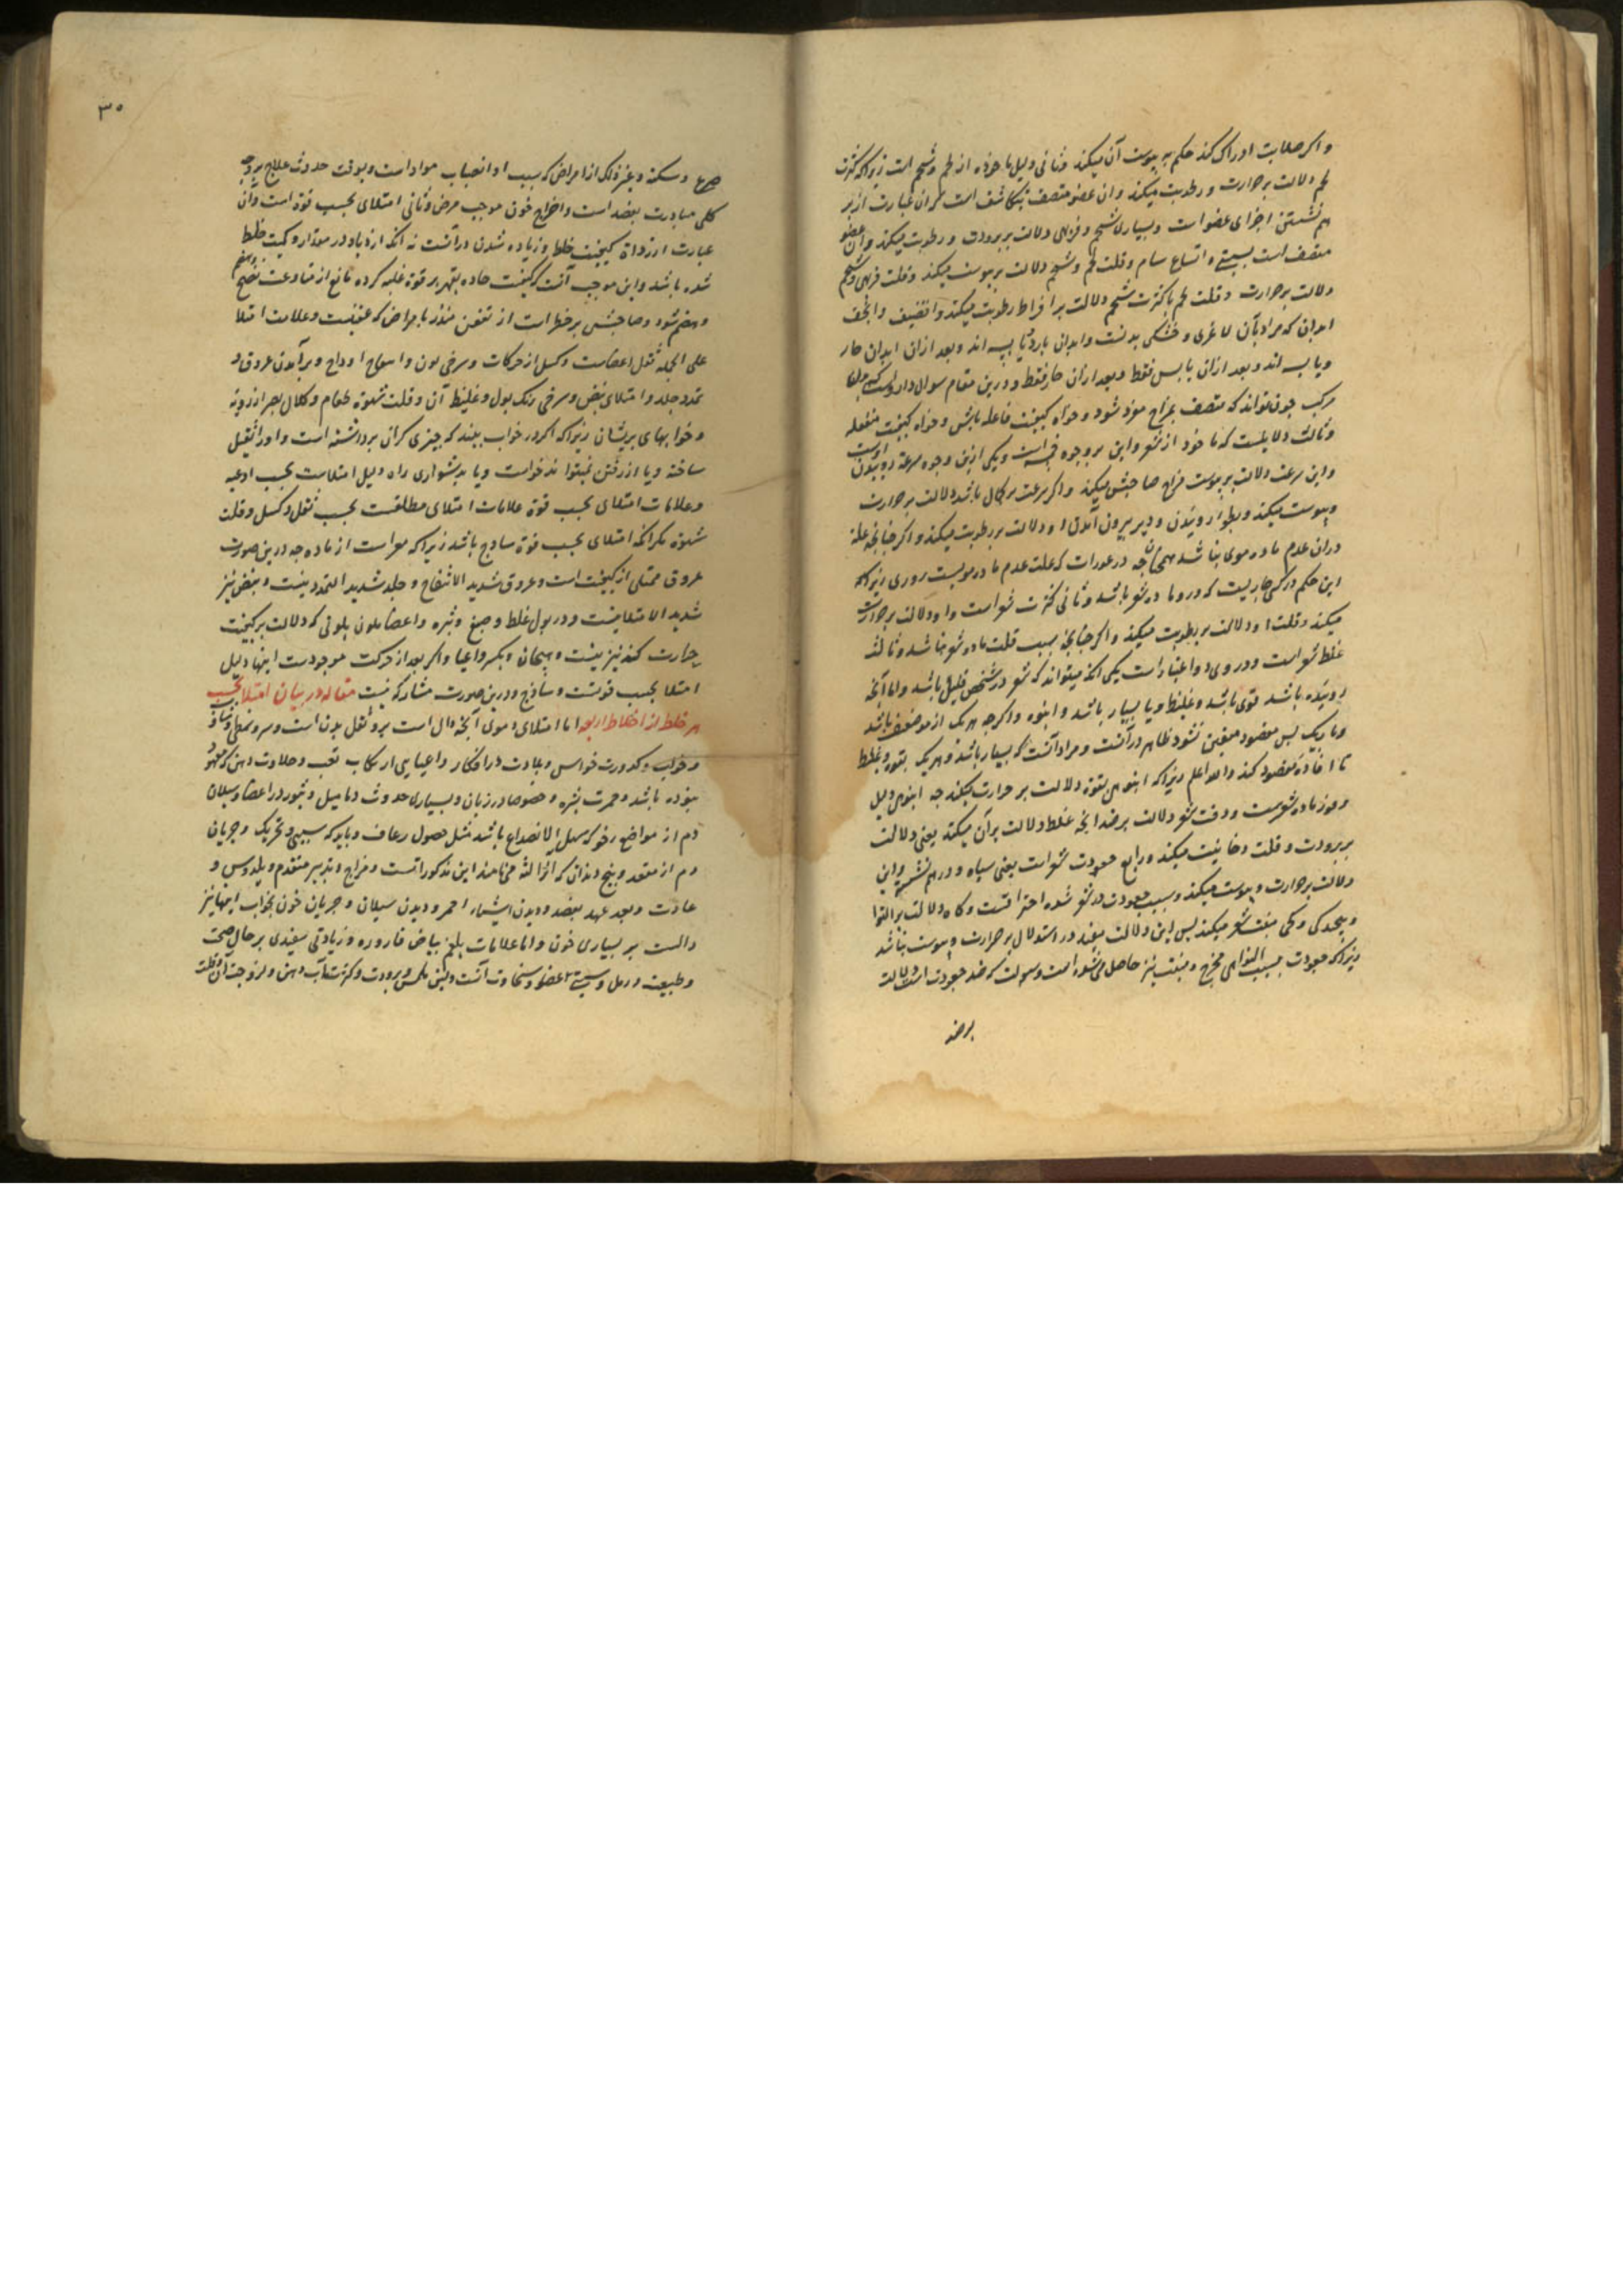 واکر صلابت ادراک کند حکم به یبوست آن میکند و ثانی دلیل ماخوذه از لحم و شحم است زیراکه کثرت
لحم دلالت بر حرارت و رطوبت میکند و ان عضو متصف بتکاثف است که ان عبارت از بر
هم نشستن اجزای عضو است و بسیاری شحم و فربهی دلالت بر برودت و رطوبت میکند و ان عضو
متصف است بسستی و اتساع مسام و قلت لحم و شحم دلالت بر یبوست میکند و قلت فربهی و شحم
دلالت بر حرارت و قلت لحم با کثرت شحم دلالت بر افراط رطوبت میکند و
ابدان که مراد بآن لاغری و خشکی بدنست و ابدان بارد یابسه اند و بعد ازان ابدان حار
ویابسه اند و بعد ازان یابس فقط و بعد ازان حار فقط و درین مقام سوال دارد
مرکب چون تواند که متصف بمزاج مفرد شود و خواه کیفیت فاعله باشد و خواه کیفیت منفعله
و ثالث دلایلست که ماخوذ از شعر و این بر وجوه خمسه است و یکی ازین وجوه سرعة روییدن اوست
و این سرعت دلالت بر یبوست مزاج صاحبش میکند و اکر سرعت بر کمال باشد دلالت بر حرارت
و یبوست میکند و بطوء روییدن و دیر بیرون آمدن او دلالت بر رطوبت میکند و اکر چنانچه علة
دران عدم ماده موی نباشد همچنانچه در عورات که علت عدم ماده
این حکم در کسی جاریست که درو ماده شعر باشد و ثانی کثرت شعر است و او دلالت بر حرارت
میکند و قلت او دلالت بر رطوبت میکند و اکر چنانچه بسبب قلت ماده شعر نباشد و ثالث
غلظ شعر است و در وی دو اعتبار است یکی آنکه میتواند که شعر در شخص قلیل باشد و اما آنچه
روییده باشد قوی باشد و غلیظ و یا بسیار باشد و انبوه و اکرچه هر یک از مو ضعیف باشد
و باریک پس مقصود معین نشود ظاهر درآنست و مراد آنست که بسیار باشد و هر یک بقوه و غلیظ
تا افاده مقصود کند والله اعلم زیراکه انبوهی بقوة دلالت بر حرارت میکند چه انبوهی دلیل
وفور ماده شعرست و دقت شعر دلالت بر ضد آنچه غلظ دلالت بر آن میکند یعنی دلالت
بر برودت و قلت دخانیت میکند و رابع جعودت شعر است یعنی سیاه و درهم نشسته و این
دلالت بر حرارت و یبوست میکند و سبب جعودت در شعر شده احتراقست و کاه دلالت بر التوا
و پیچیدکی و کجی منبت شعر میکند پس این دلالت مفید در استدلال بر حرارت و یبوست نباشد
زیراکه جعودت بسبب التوای مخرج و منبت نیز حاصل می شود است و سهولت که ضد جعودت است دلالت
بر ضد
۳۰
صرع و سکته و غیر ذلک از امراض که سبب او انصباب مواد است و بوقت حدوث علاج بروجه
کلی مبادرت بفصد است و اخراج خون موجب مرض و ثانی امتلای بحسب قوة است و آن
عبارت از زیاده کیفیت خلط و زیاده شدن درآنست نه آنکه ازدیاد در مقدار و کمیت خلط
شده باشد و این موجب آنست که کیفیت حاده بقهر بر قوة غلبه کرده مانع از مقاومت نضج
و هضم شود و صاحبش بر خطر است از تعفن منذر بامراض که عفنیست و علامت امتلا
علی الجمله ثقل اعضاست و کسل از حرکات و سرخی لون و انتفاخ اوداج و برآمدن عروق و
تمدد جلد و امتلای نبض و سرخی رنک بول و غلیظ آن و قلت شهوة طعام و کلال بصر
و خوابهای پریشان زیراکه اکر در خواب بیند که چیزی کران برداشته است و او را ثقیل
ساخته و یا از رفتن نمیتواند خواست و یا بدشواری راه دلیل امتلاست بحسب اوعیه
و علامات امتلای بحسب قوة علامات امتلای مطلقست بحسب ثقل و کسل و قلت
شهوة مکر آنکه امتلای بحسب قوة ساذج باشد زیراکه معراست از ماده چه درین صورت
عروق ممتلی از کیفیت است و عروق شدید الانتفاخ و جلد شدید التمدد نیست و نبض نیز
شدید الامتلا نیست و در بول غلظ و صبغ و بشره و اعضا ملون بلونی که دلالت بر کیفیت
حرارت کند نیز نیست و هیجان و تکسر و اعیا و اکر بعد از حرکت موجودست اینها دلیل
امتلا بحسب قوتست و ساذج و درین صورت مشارک نیست مقاله در بیان امتلا بحسب
هر خلط از اخلاط اربعه اما امتلای دموی آنچه دال است برو ثقل بدن است و سر و تمطی و تثاوب
و خواب و کدورت حواس و بلادت در افکار و اعیا بی ارتکاب تعب و حلاوت دهن که معهود
نبوده باشد و حمرت بشره و خصوصا در زبان و بسیاری حدوث دمامیل و بثور در اعضا و سیلان
دم از مواضع رخو که سهل الانصداع باشد مثل حصول رعاف و باید که سببی و تحریک و جریان
دم از مقعد و بیخ دندان که آنرا لثه می نامند این مذکور راتست و مزاج و تدبیر متقدم و بلد و سن و
عادت و بعد عهد بفصد و دیدن اشیاء احمر و دیدن سیلان و جریان خون بخواب اینها نیز
دالست بر بسیاری خون و اما علامات بلغم بیاض قاروره و زیادتی سفیدی بر حال صحت
و طبیعت و رهل و سستی اعضا و سخاوت آنست و لین ملمس و برودت و کثرت لعاب دهن و لزوجت آن و قلت